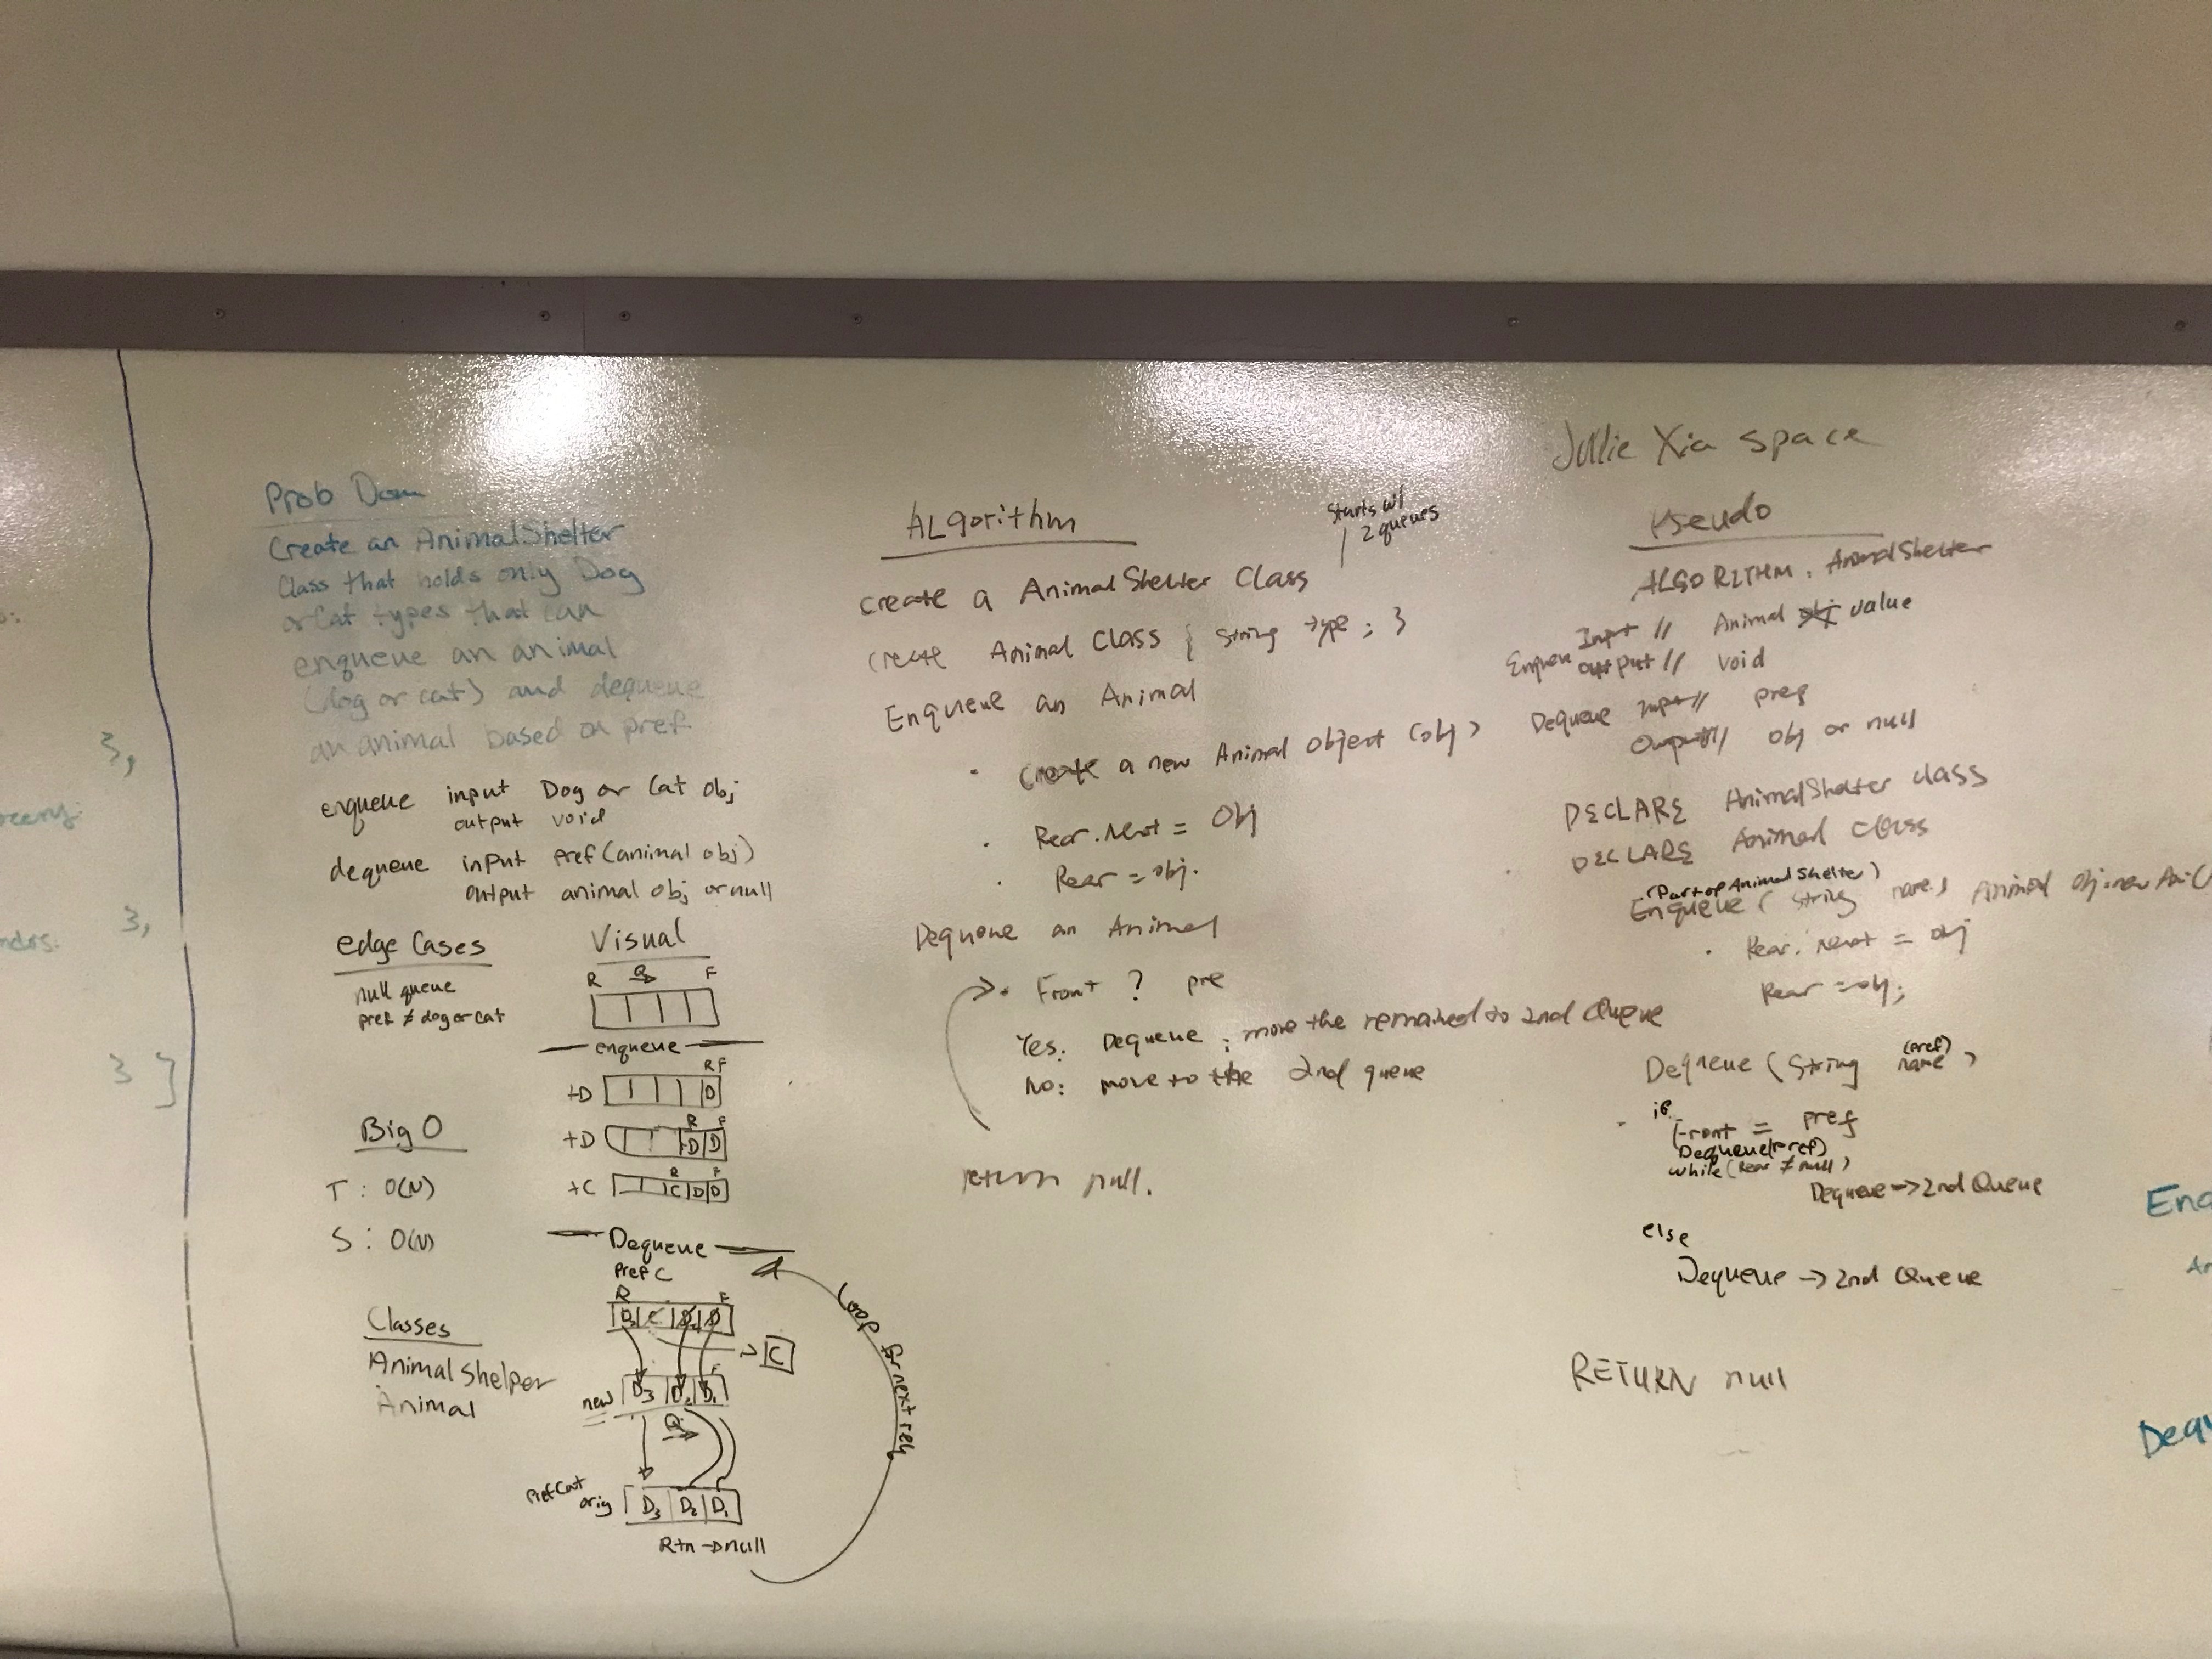 Prob Dom
Create an AnimalShelter
Class that holds only Dog
or Cat types that can
enqueue an animal
(dog or cat) and dequeue
an animal based on pref.
enqueue input Dog or Cat obj
output void
dequeue input pref (animal obj)
output animal obj or null
edge Cases
null queue
pref ≠ dog or cat
Big O
T: O(N)
S: O(N)
Classes
Animal Shelper
Animal
Visual
R Q F
enqueue
R F
+D D
R F
+D D D
R F
+C C D D
Dequeue
Pref C
R F
D3 C D2 D
C
F
new D3 D2 D1
Q
pref Cat
orig D3 D2 D1
Rtn → null
Loop for next req
ALgorithm
Starts w/
2 queues
create a AnimalShelter Class
create Animal Class { string type; }
Enqueue an Animal
. Create a new Animal object (obj)
. Rear.Next = Obj
. Rear = obj.
Dequeue an Animal
. Front ? pre
Yes: Dequeue; move the remained to 2nd Queue
No: move to the 2nd queue
return null.
Julie Xia space
Pseudo
ALGORITHM: AnimalShelter
Input // Animal value
Enqueu output // void
Dequeue Input // pref
Output // obj or null
DECLARE AnimalShelter class
DECLARE Animal class
(Part of Animal Shelter)
Enqueue (string name) Animal obj = new
. Rear.Next = obj
Rear = obj;
(pref)
Dequeue (String name)
. if
Front = pref
Dequeue(pref)
while (Rear ≠ null)
Dequeue → 2nd Queue
else
Dequeue → 2nd Queue
RETURN null
3,
3,
3 ]
Enq
Dequ